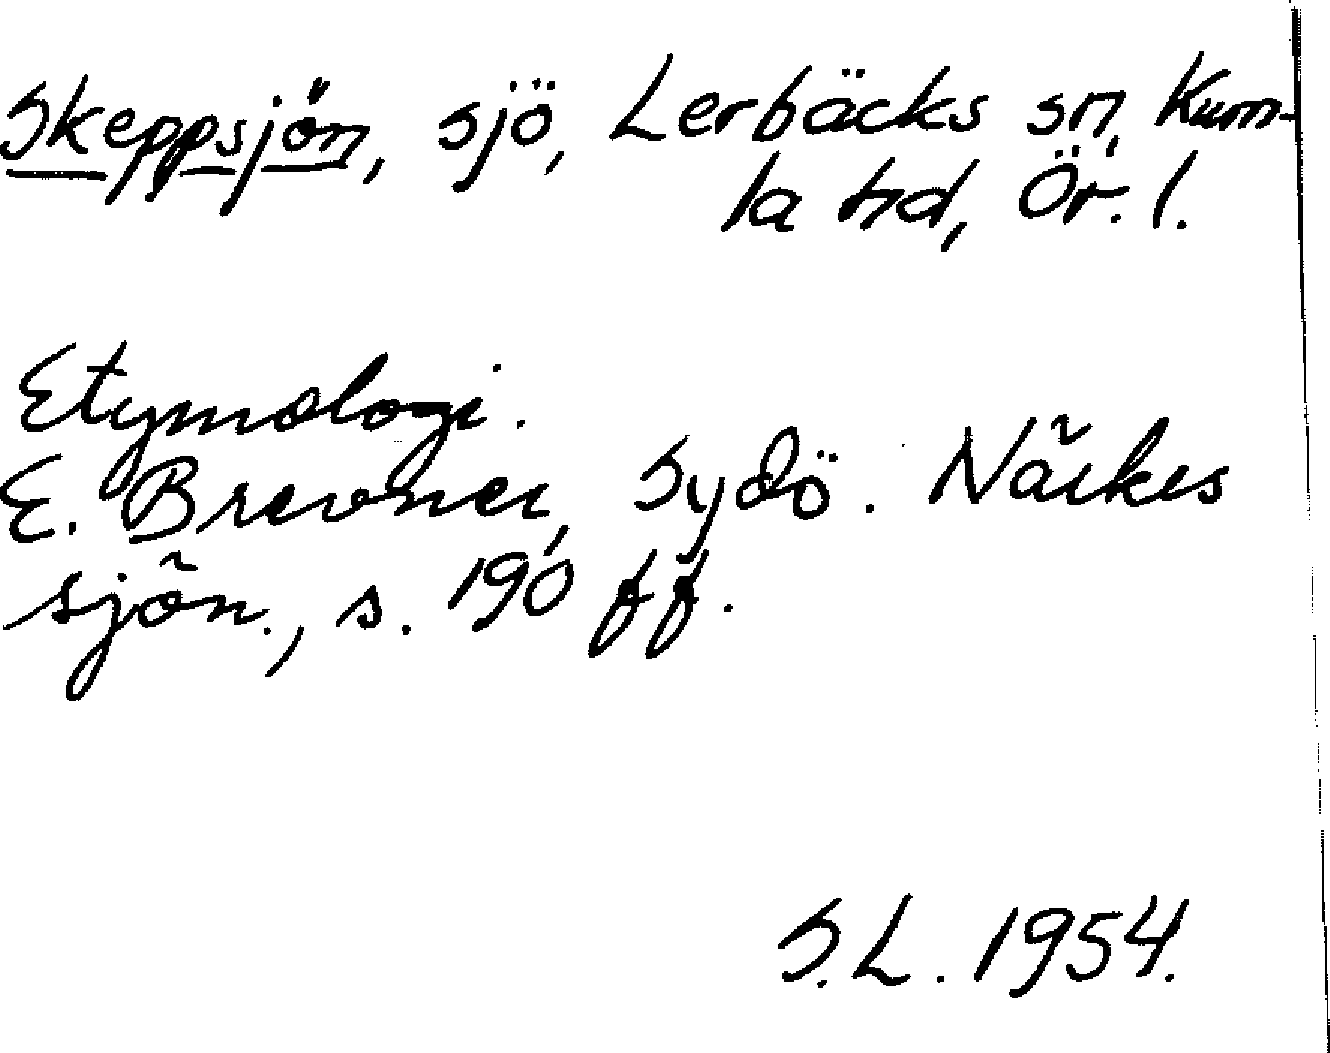 Skeppsjön, sjö, Lerbäcks sn, Kum-
la hd, Ör. l.
Etymologi.
E. Brevner, Sydö. Närkes
sjön., s. 190 ff.
S.L. 1954.